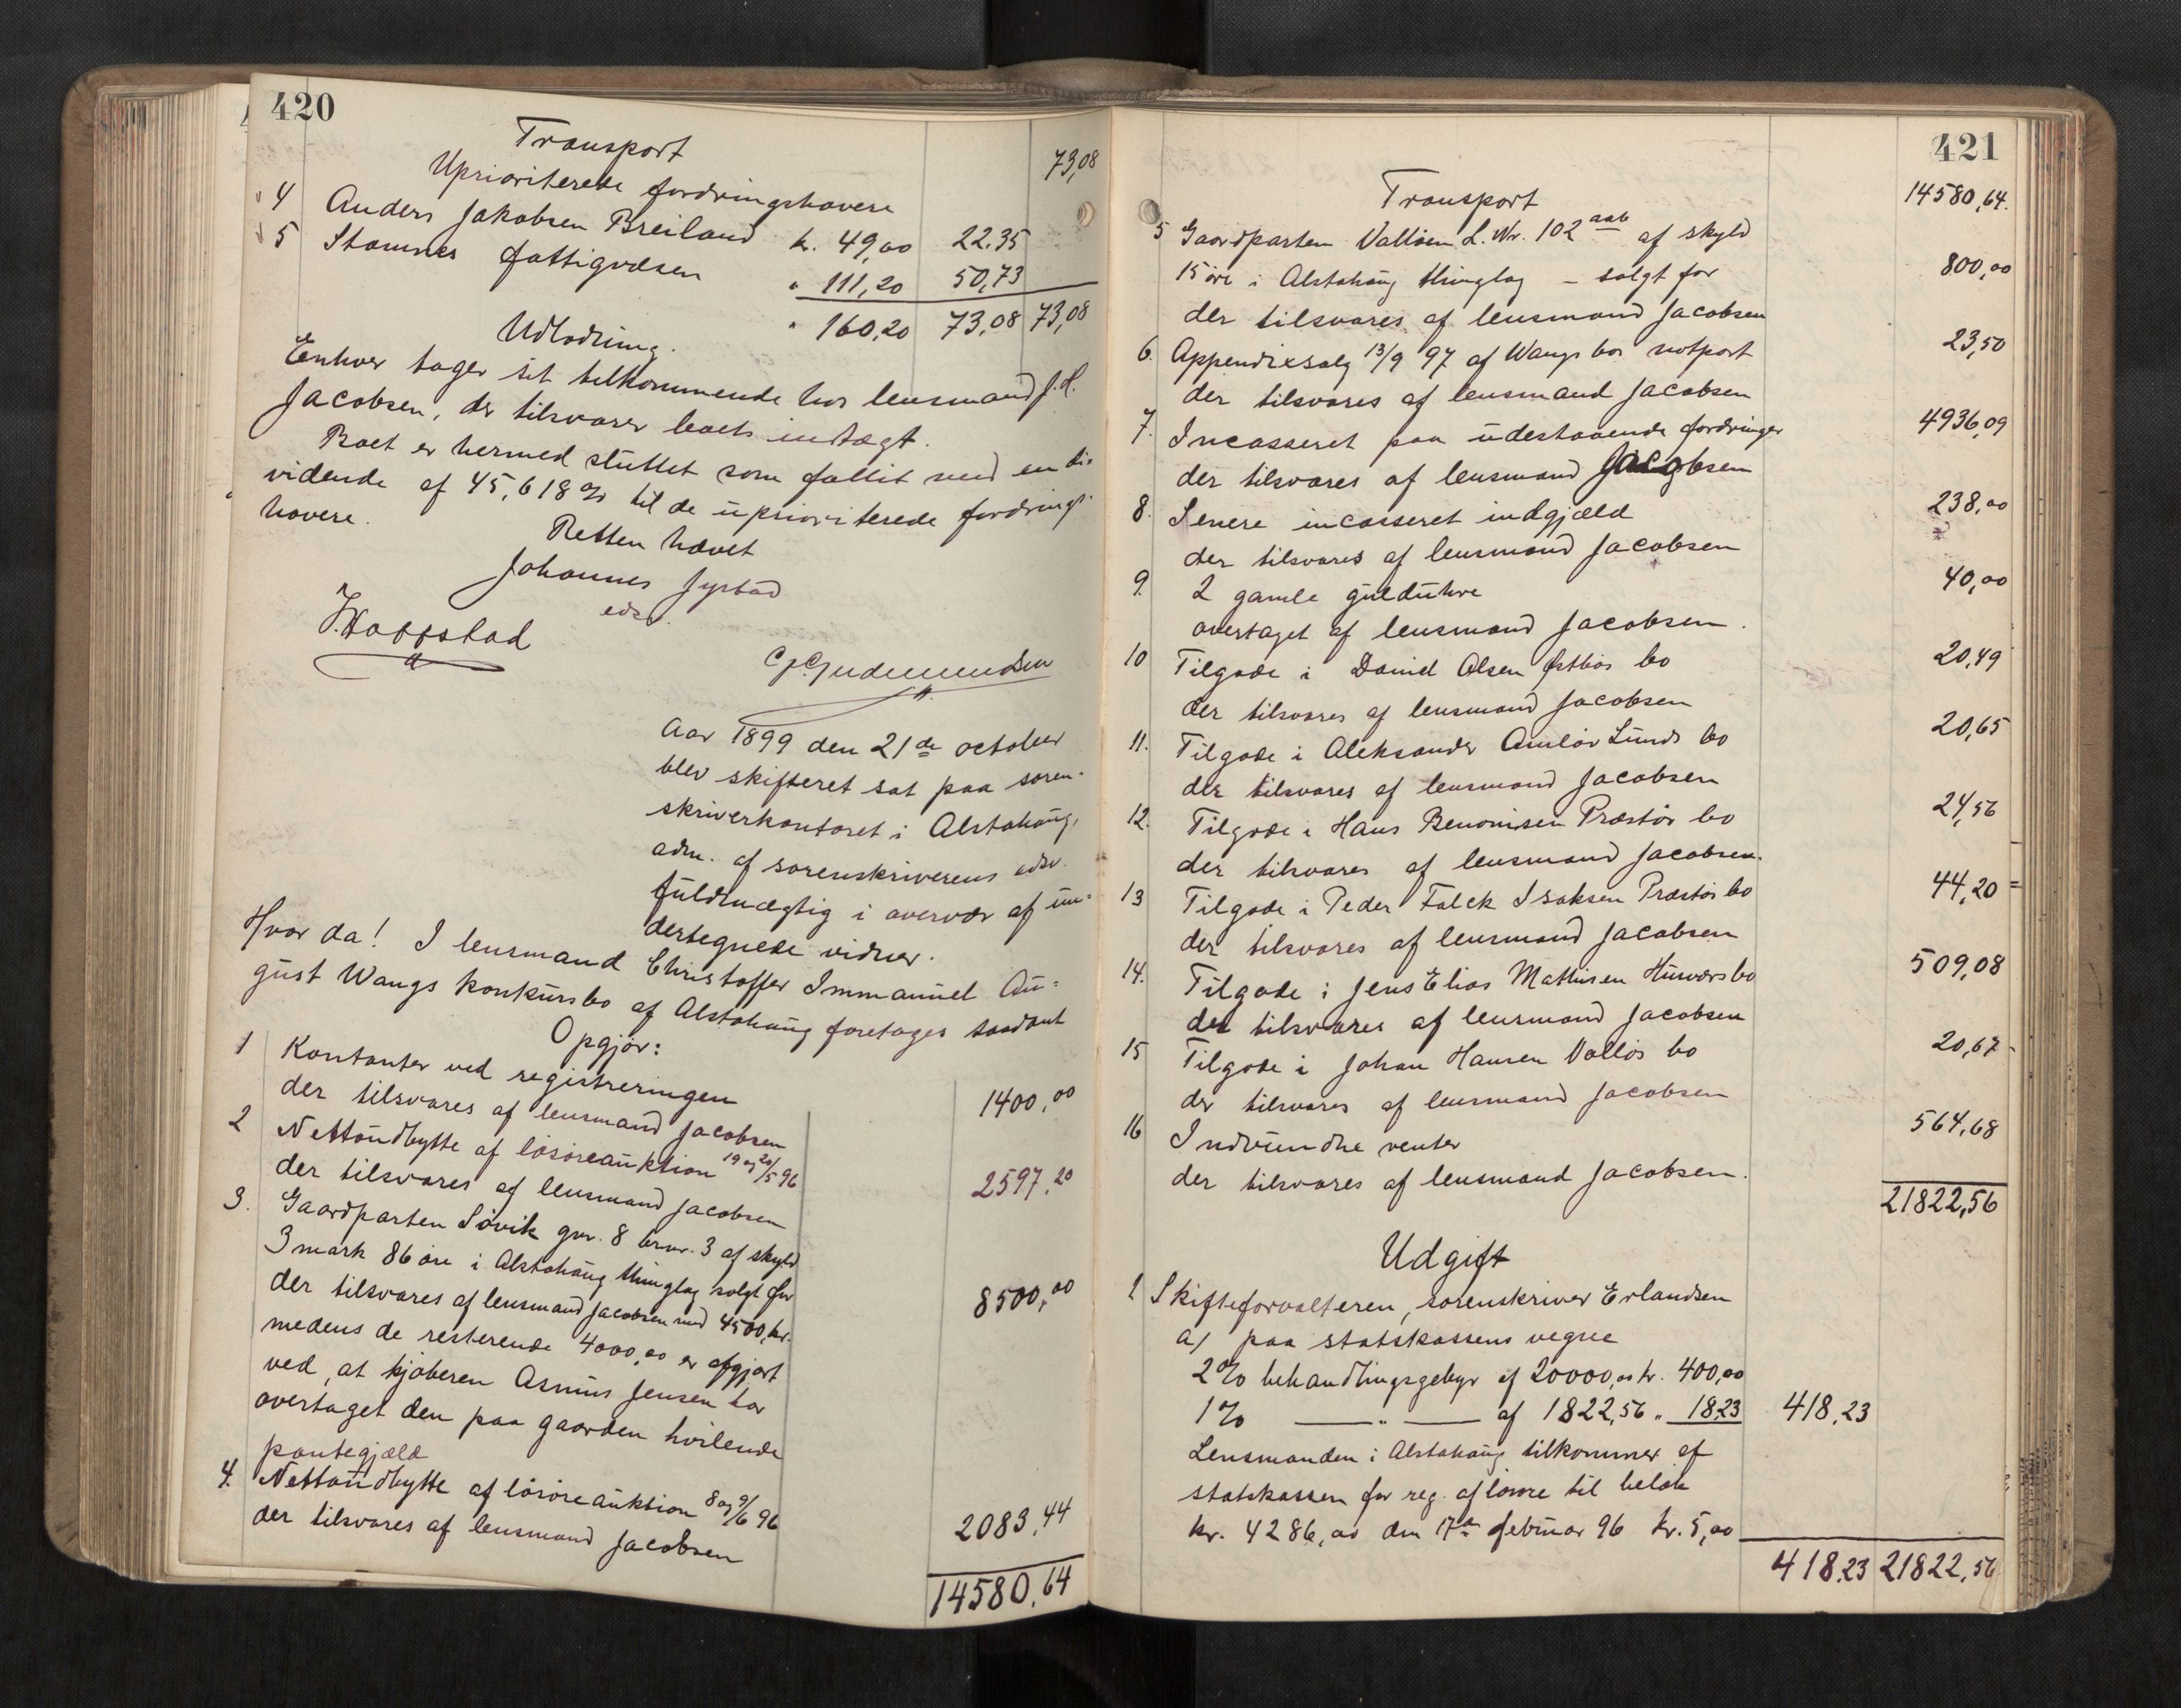 420
Transport 73,08
Uprioriterede fordringshavere
4 Anders Jakobsen Breiland kr. 49,00 22.35
5 Stamnes fattigvæsen " 111,20 50,73
" 160,20 73,08 73,08
Udlodning.
Enhver tager sit tilkommende hos lensmand J. H.
Jacobsen, der tilsvarer boets indtægt.
Boet er hermed sluttet som fallit med en di-
vidende af 45,618 % til de uprioriterede fordrings-
havere.
Retten hævet
Johannes Gystad
eds.
J. Haffstad
C. J. Gudmundsen
Aar 1899 den 21de october
blev skifteret sat paa soren-
skriverkontoret i Alstahaug,
adm. af sorenskriverens edsv.
fuldmægtig i overvær af un-
dertegnede vidner.
Hvor da! I lensmand Christoffer Immanuel Au-
gust Wangs konkursbo af Alstahaug foretages saadant
Opgjør:
1 Kontanter ved registreringen 1400,00
der tilsvares af lensmand Jacobsen
2 Nettoudbytte af løsøreauktion 19 og 20/5 96 2597,20
der tilsvares af lensmand Jacobsen
3. Gaardparten Søvik gnr. 8 brnr. 3 af skyld
3 mark 86 øre i Alstahaug thinglag solgt for 8500,00
der tilsvares af lensmand Jacobsen med 4500 kr.
medens de resterende 4000,00 er afgjort
ved, at kjøberen Asmus Jensen har
overtaget den paa gaarden hvilende
pantegjæld
4. Nettoudbytte af løsøreauktion 8 og 9/6 96 2083,44
der tilsvares af lensmand Jacobsen
14580,64
421
Transport 14580,64.
5 Gaardparten Valløen L. Nr. 102 aab af skyld
15 øre i Alstahaug thinglag – solgt for 800,00
der tilsvares af lensmand Jacobsen
6. Appendixsalg 13/9 97 af Wangs bos notpart 23,50
der tilsvares af lensmand Jacobsen
7. Incasseret paa udestaaende fordringer 4936,09
der tilsvares af lensmand Jacobsen
8. Senere incasseret indgjæld 238,00
der tilsvares af lensmand Jacobsen
9. 2 gamle gulduhre 40,00
overtaget af lensmand Jacobsen.
10 Tilgode i Daniel Olsen Østbøs bo 20,49
der tilsvares af lensmand Jacobsen
11. Tilgode i Aleksander Amløv Lunds bo 20,65
der tilsvares af lensmand Jacobsen
12. Tilgode i Hans Benonisen Præstøs bo 24,56
der tilsvares af lensmand Jacobsen.
13 Tilgode i Peder Falck Isaksen Præstøs bo 44,20
der tilsvares af lensmand Jacobsen
14. Tilgode i Jens Elias Mathisen Husværs bo 509,08
der tilsvares af lensmand Jacobsen
15 Tilgode i Johan Hansen Valløs bo 20,67
der tilsvares af lensmand Jacobsen
16 Indvundne renter 564,68
der tilsvares af lensmand Jacobsen.
21822,56
Udgift
1 Skifteforvalteren, sorenskriver Erlandsen
a) paa statskassens vegne
2% behandlingsgebyr af 20000,00 kr. 400,00
1% — " — af 1822,56 " 18,23 418,23
Lensmanden i Alstahaug tilkommer af
statskassen for reg. af løsøre til beløb
kr. 4286,00 den 17de februar 96 kr. 5,00
418,23 21822,56